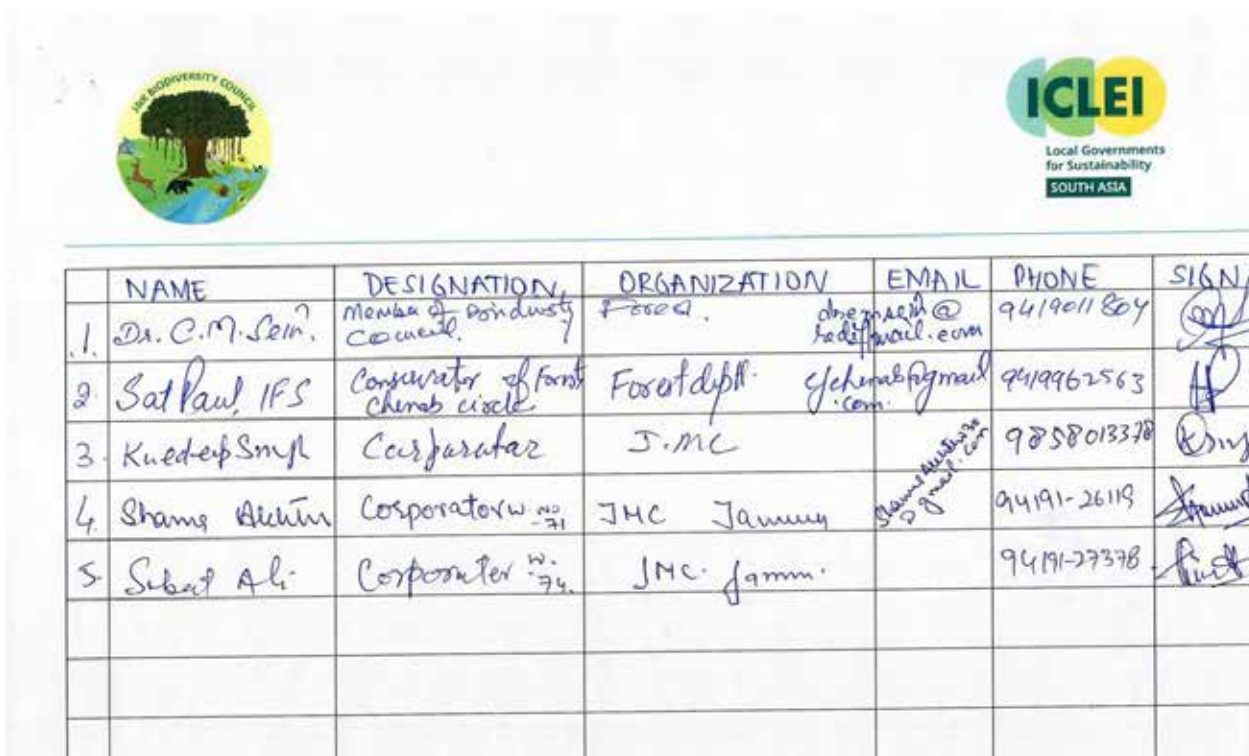 J&K BIODIVERSITY COUNCIL
ICLEI
Local Governments
for Sustainability
SOUTH ASIA
NAME DESIGNATION ORGANIZATION EMAIL PHONE SIGN
1. Dr. C.M. Sein. Member of Council. Forest. @rediffmail.com 9419011804
2. Sat Paul, IFS Conservator of Forest Chenab circle Forest deptt. cfchenab@gmail.com. 9419962563
3. Kuldeep Singh Corporator J.MC 9858013378
4. Shama Akhtar Corporator W. NO -71 JMC Jammu @gmail.com 94191-26119
5. Ali Corporater W. -74. JMC. Jammu. 94191-27378